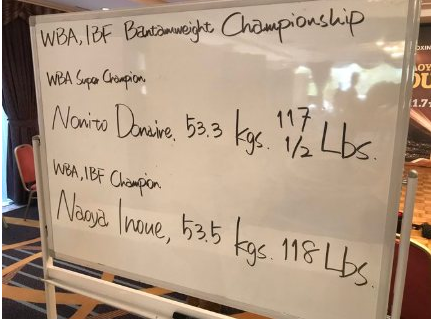 WBA, IBF Bantamweight Championship
WBA Super Champion
Nonito Donaire, 53.3 kgs. 117 1/2 Lbs.
WBA, IBF Champion
Naoya Inoue, 53.5 kgs. 118 Lbs.
11.7